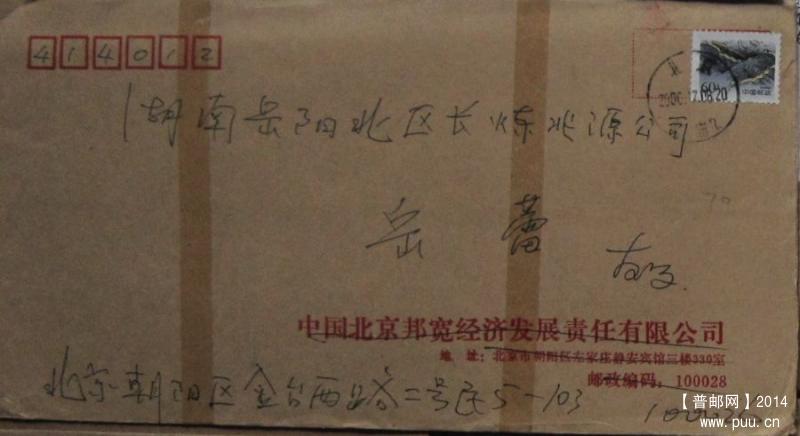 414012
湖南岳阳北区长炼兆源公司
岳蕾
60分
中国邮政
中国北京邦宽经济发展责任有限公司
地 址：北京市朝阳区左家庄静安宾馆三楼330室
邮政编码：100028
北京朝阳区金台西路二号院5-103
【普邮网】2014
www.puu.cn